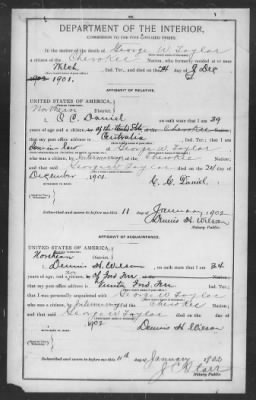 DEPARTMENT OF THE INTERIOR,
COMMISSION TO THE FIVE CIVILIZED TRIBES.
In the matter of the death of George W. Taylor
a citizen of the Cherokee Nation, who formerly resided at or near
Welch, Ind. Ter., and died on the 24 day of Dec
1902 1901.
AFFIDAVIT OF RELATIVE.
UNITED STATES OF AMERICA,
Northern District.
I, C. C. Daniel, on oath state that I am 39
years of age and a citizen of the Cherokee
that my post office address is Centralia, Ind. Ter.; that I am
of George W. Taylor
who was a citizen, by intermarriage of the Cherokee Nation,
and that said George W. Taylor died on the 24 day of
December, 1901
C. C. Daniel
Subscribed and sworn to before me this 11 January, 1902
Dennis H. Wilson
Notary Public.
AFFIDAVIT OF ACQUAINTANCE.
UNITED STATES OF AMERICA,
Northern District.
I, Dennis H. Wilson, on oath state that I am 34
years of age, and a citizen of Ind Ter
that my post office address is Vinita Ind. Ter
that I was personally acquainted with George W Taylor
who was a citizen, by intermarriage of the Cherokee Nation,
and that said George W Taylor died on the day of
1902
Dennis H Wilson
Subscribed and sworn to before me this 11 January 1902
Notary Public.